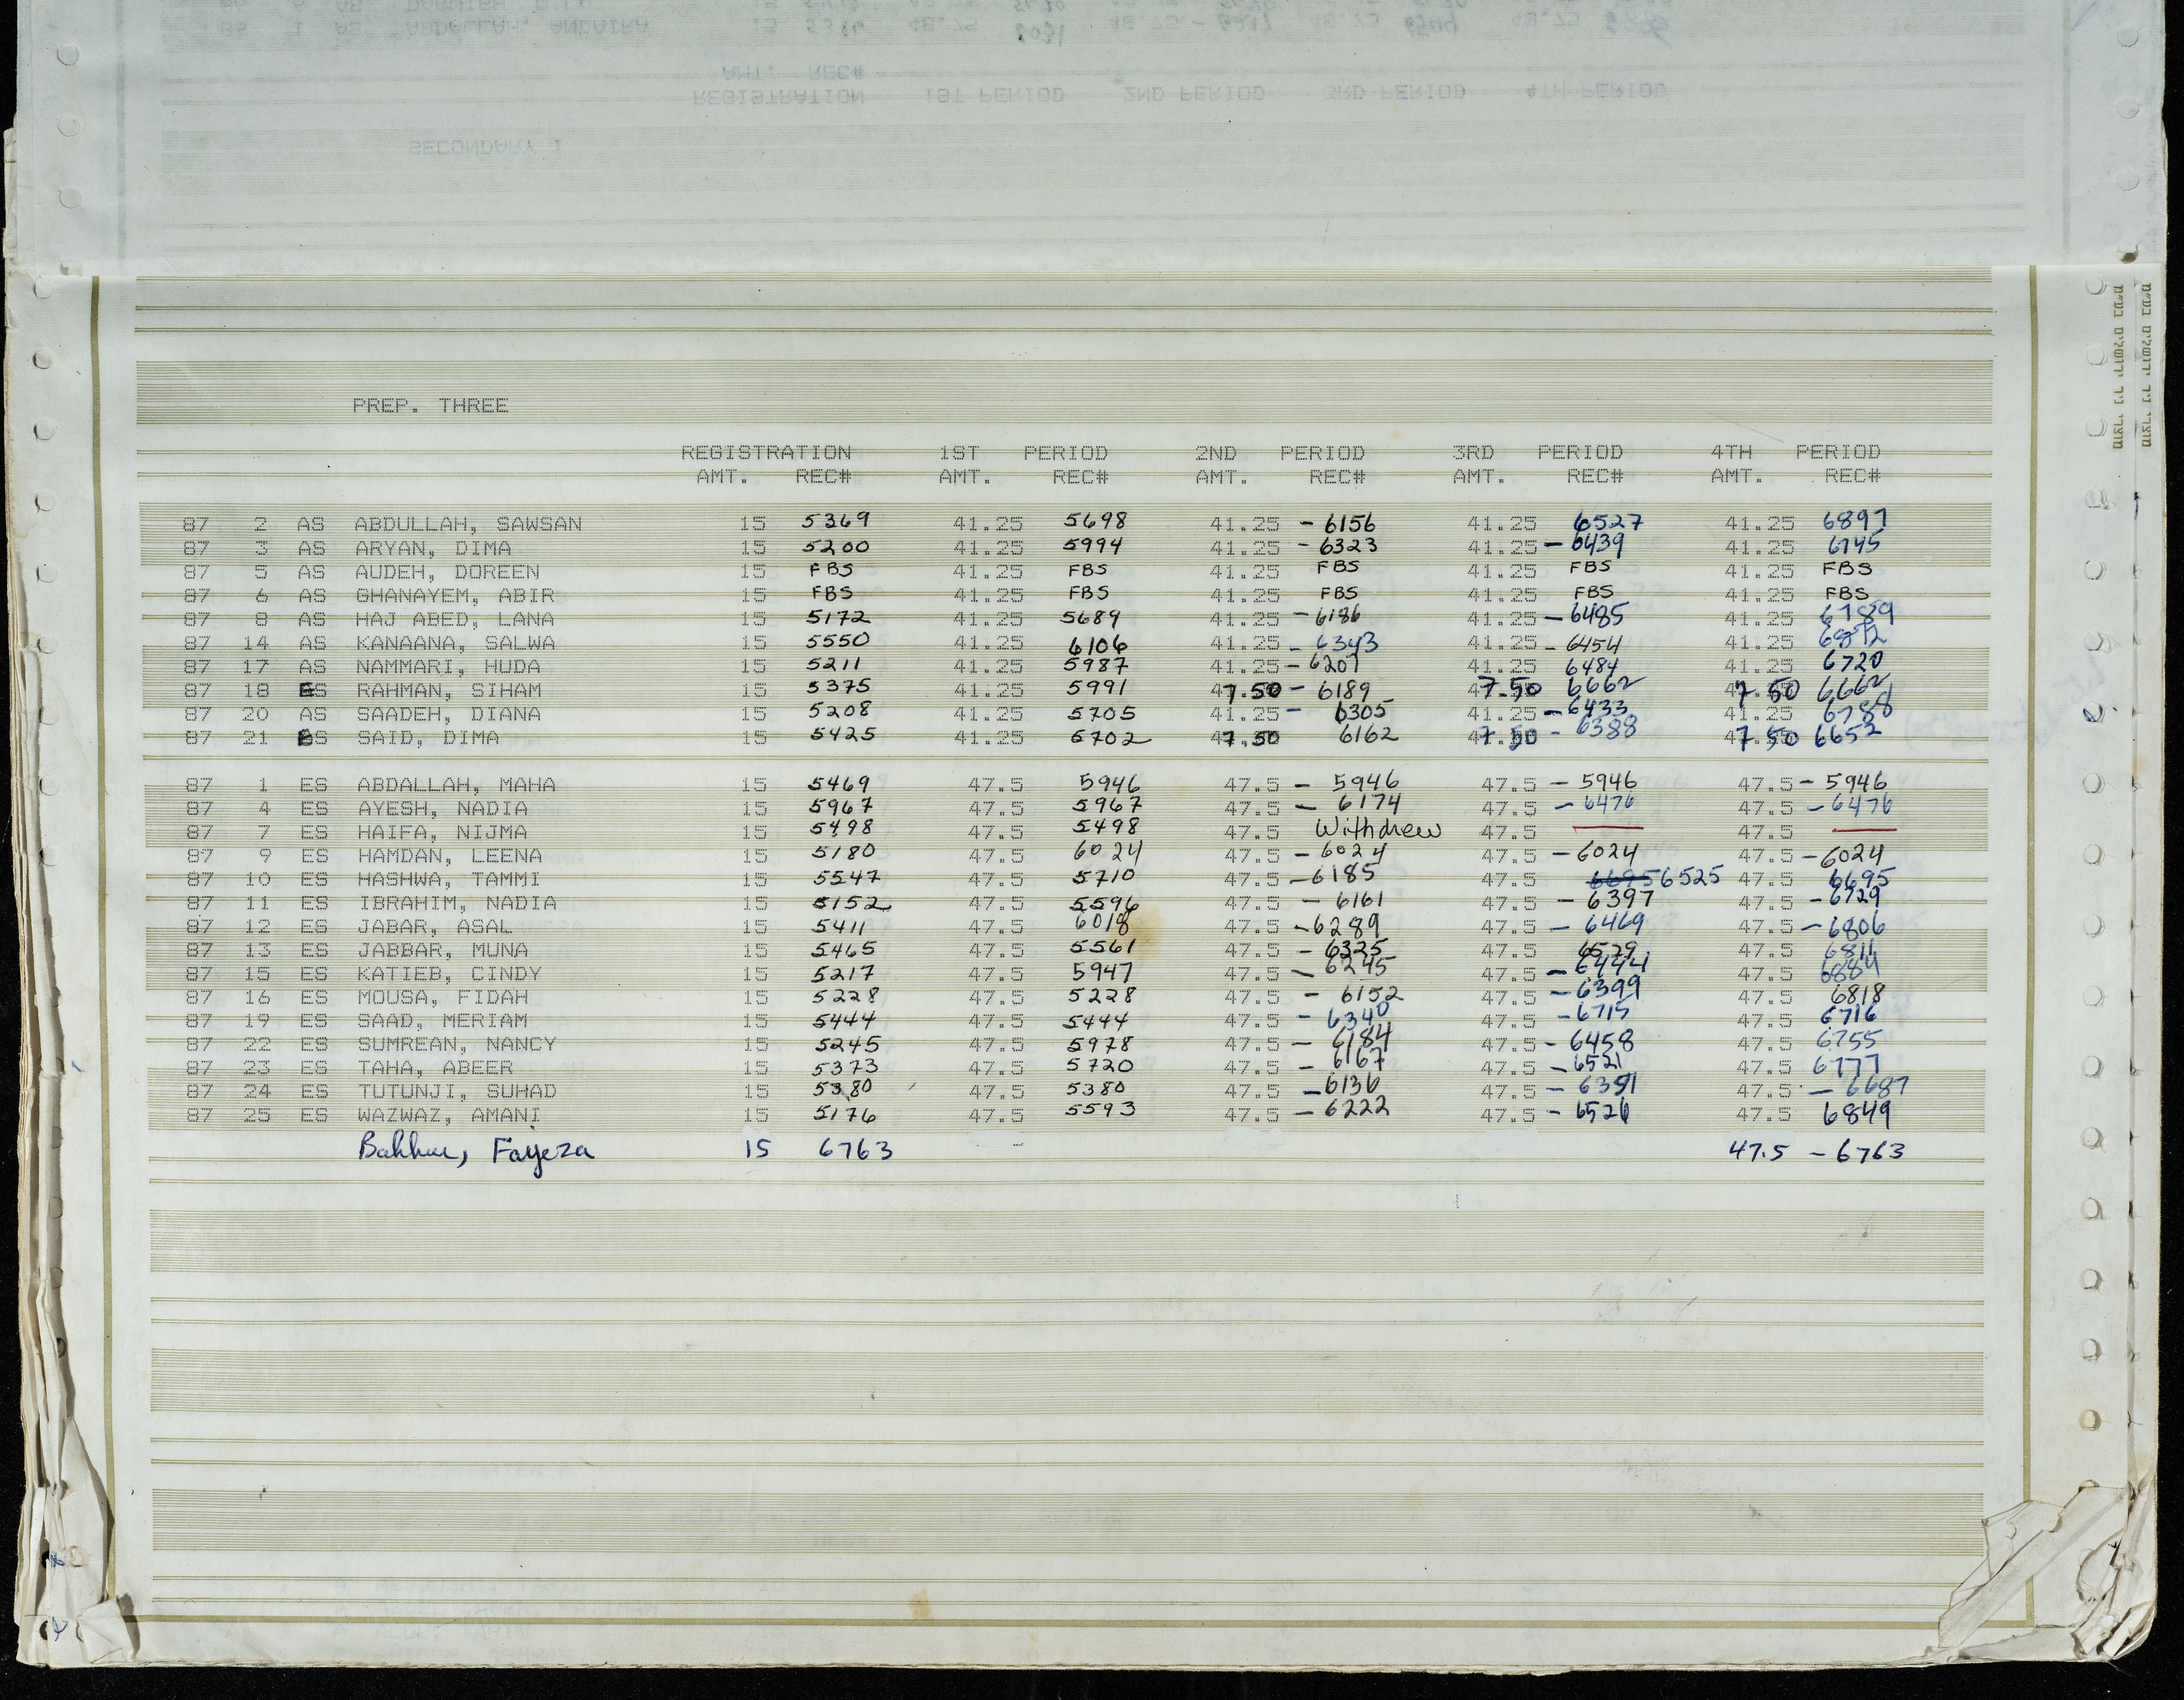 PREP. THREE
REGISTRATION 1ST PERIOD 2ND PERIOD 3RD PERIOD 4TH PERIOD
AMT. REC# AMT. REC# AMT. REC# AMT. REC# AMT. REC#
87 2 AS ABDULLAH, SAWSAN 15 5369 41.25 5698 41.25 - 6156 41.25 6527 41.25 6897
87 3 AS ARYAN, DIMA 15 5200 41.25 5994 41.25 - 6323 41.25 - 6439 41.25 6745
87 5 AS AUDEH, DOREEN 15 FBS 41.25 FBS 41.25 FBS 41.25 FBS 41.25 FBS
87 6 AS GHANAYEM, ABIR 15 FBS 41.25 FBS 41.25 FBS 41.25 FBS 41.25 FBS
87 8 AS HAJ ABED, LANA 15 5172 41.25 5689 41.25 - 6186 41.25 - 6485 41.25 6789
87 14 AS KANAANA, SALWA 15 5550 41.25 6106 41.25 - 6343 41.25 - 6454 41.25 6872
87 17 AS NAMMARI, HUDA 15 5211 41.25 5987 41.25 - 6207 41.25 6484 41.25 6720
87 18 ES RAHMAN, SIHAM 15 5375 41.25 5991 47.50 - 6189 47.50 6662 47.50 6662
87 20 AS SAADEH, DIANA 15 5208 41.25 5705 41.25 - 6305 41.25 - 6433 41.25 6788
87 21 ES SAID, DIMA 15 5425 41.25 5702 47.50 6162 47.50 - 6388 47.50 6652
87 1 ES ABDALLAH, MAHA 15 5469 47.5 5946 47.5 - 5946 47.5 - 5946 47.5 - 5946
87 4 ES AYESH, NADIA 15 5967 47.5 5967 47.5 - 6174 47.5 - 6476 47.5 - 6476
87 7 ES HAIFA, NIJMA 15 5498 47.5 5498 47.5 Withdrew 47.5 — 47.5 —
87 9 ES HAMDAN, LEENA 15 5180 47.5 6024 47.5 - 6024 47.5 - 6024 47.5 - 6024
87 10 ES HASHWA, TAMMI 15 5547 47.5 5710 47.5 - 6185 47.5 6695 6525 47.5 6695
87 11 ES IBRAHIM, NADIA 15 5152 47.5 5596 47.5 - 6161 47.5 - 6397 47.5 - 6729
87 12 ES JABAR, ASAL 15 5411 47.5 6018 47.5 - 6289 47.5 - 6469 47.5 - 6806
87 13 ES JABBAR, MUNA 15 5465 47.5 5561 47.5 - 6325 47.5 6529 47.5 6811
87 15 ES KATIEB, CINDY 15 5217 47.5 5947 47.5 - 6245 47.5 - 6444 47.5 6884
87 16 ES MOUSA, FIDAH 15 5228 47.5 5228 47.5 - 6152 47.5 - 6399 47.5 6818
87 19 ES SAAD, MERIAM 15 5444 47.5 5444 47.5 - 6340 47.5 - 6715 47.5 6716
87 22 ES SUMREAN, NANCY 15 5245 47.5 5978 47.5 - 6184 47.5 - 6458 47.5 6755
87 23 ES TAHA, ABEER 15 5373 47.5 5720 47.5 - 6167 47.5 - 6521 47.5 6777
87 24 ES TUTUNJI, SUHAD 15 5380 47.5 5380 47.5 - 6136 47.5 - 6391 47.5 - 6687
87 25 ES WAZWAZ, AMANI 15 5176 47.5 5593 47.5 - 6222 47.5 - 6526 47.5 6849
Fayeza 15 6763 47.5 - 6763